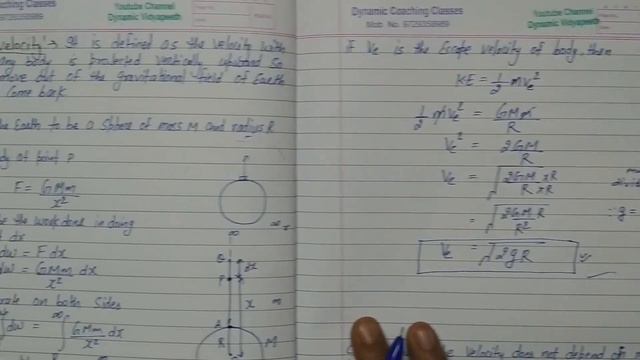 Dynamic Coaching Classes
Mob No. 
Youtube Channel
Dynamic Vidyapeeth
velocity → It is defined as the velocity with
any body is projected vertically upward so
move out of the gravitational field of Earth
Come back
the Earth to be a sphere of mass M and radius R
body at point P
F = GMm / x²
be the work done in doing
dx
dw = F dx
dw = GMm / x² dx
on both sides
∫dw = ∫ GMm / x² dx
P
∞
∞
dx
P
x
m
R
M
Dynamic Coaching Classes
Mob No. 9729350989
Youtube Channel
Dynamic Vidyapeeth
if Ve is the Escape velocity of body then
KE = 1/2 mve²
1/2 mve² = GMm / R
Ve² = 2GM / R
Ve = √(2GM × R / R × R)
= √(2GM R / R²)
∴ g =
Ve = √2gR
velocity does not depend of